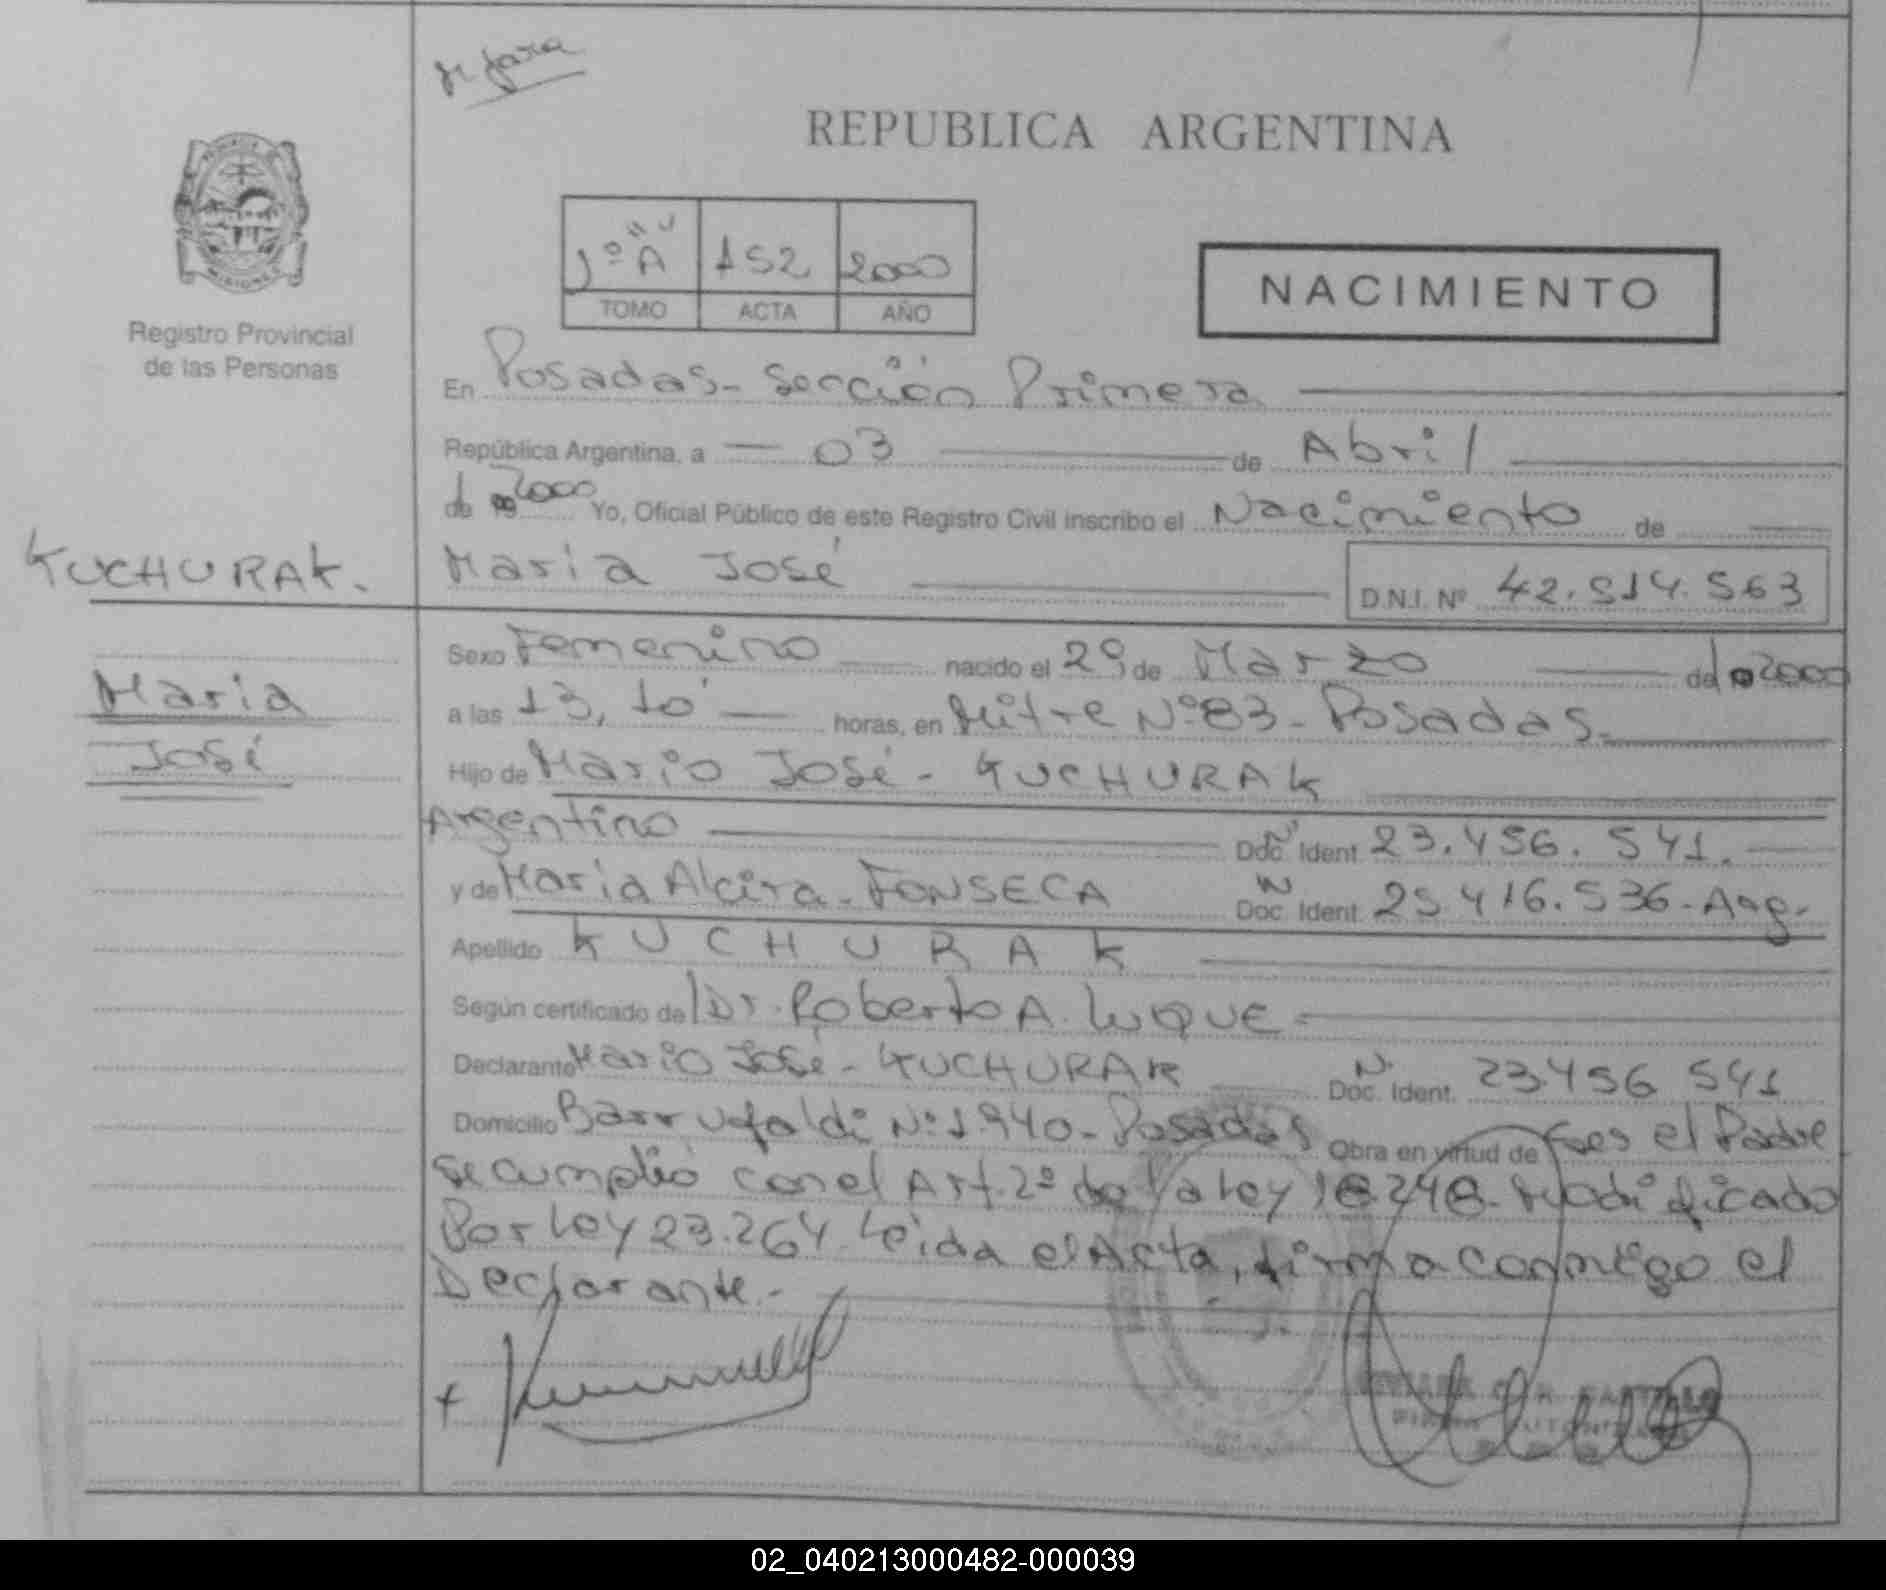 REPUBLICA ARGENTINA
MISIONES
Registro Provincial
de las Personas
1º "A" 152 2000
TOMO ACTA AÑO
NACIMIENTO
En Posadas - Sección Primera
República Argentina, a 03 de Abril
de 2000 Yo, Oficial Público de este Registro Civil inscribo el Nacimiento de
KUCHURAK.
María José
D.N.I. Nº 42.514.563
María
José
Sexo Femenino nacido el 29 de Marzo del 2000
a las 13,10' horas, en Mitre Nº 83 - Posadas.
Hijo de Mario José - KUCHURAK
Argentino Doc. Ident. 23.456.541.
y de María Alcira - FONSECA Doc. Ident. 25.416.536 - Arg.
Apellido KUCHURAK
Según certificado del Dr. Roberto A. LUQUE -
Declarante Mario José - KUCHURAK Doc. Ident. 23456541
Domicilio Barrufaldi Nº 1.940 - Posadas Obra en virtud de ser el Padre
se cumplió con el Art. 2º de la Ley 18.248 - Modificado
Por Ley 23.264 Leída el Acta, firma conmigo el
Declarante. -
02_040213000482-000039